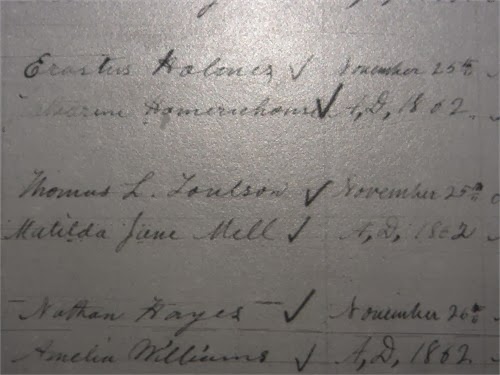 Erastus Holmes ✓ November 25th
Catharine Homerichouse ✓ A,D, 1862
Thomas L. Toulson ✓ November 25th
Matilda Jane Mell ✓ A,D, 1862
Nathan Hayes ✓ November 26th
Amelia Williams ✓ A,D, 1862